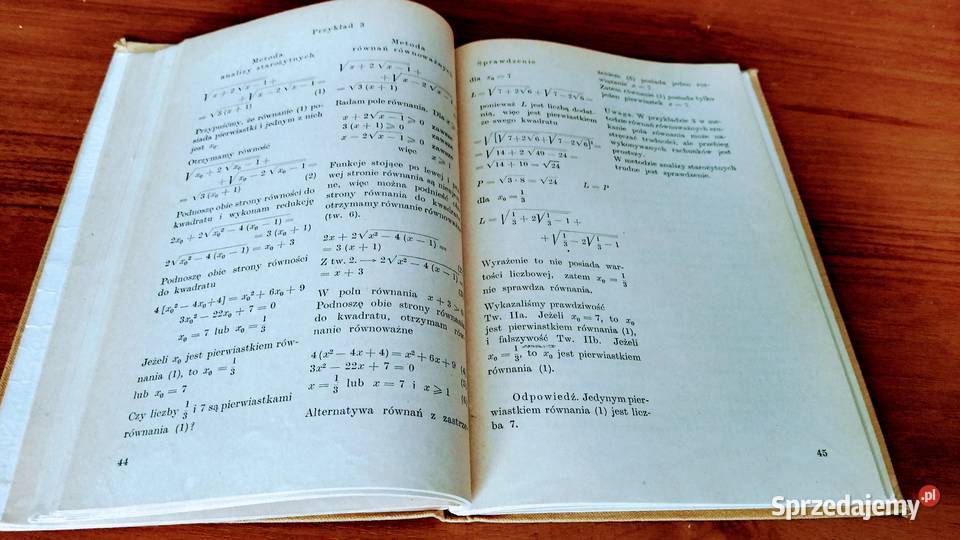 Przykład 3
Metoda
analizy starożytnych
√(x + 2√(x − 1)) +
+ √(x − 2√(x − 1)) =
= √3 (x + 1) (1)
Przypuśćmy, że równanie (1) po-
siada pierwiastki i jednym z nich
jest x₀
Otrzymamy równość
√(x₀ + 2√(x₀ − 1)) +
+ √(x₀ − 2√(x₀ − 1)) =
= √3 (x₀ + 1) (2)
Podnoszę obie strony równości do
kwadratu i wykonam redukcję
2x₀ + 2√(x₀² − 4 (x₀ − 1)) =
= 3 (x₀ + 1)
2√(x₀² − 4 (x₀ − 1)) = x₀ + 3
Podnoszę obie strony równości
do kwadratu
4 [x₀² − 4x₀+4] = x₀² + 6x₀ + 9
3x₀² − 22x₀ + 7 = 0
x₀ = 7 lub x₀ = 1/3
Jeżeli x₀ jest pierwiastkiem rów-
nania (1), to x₀ = 1/3
lub x₀ = 7
Czy liczby 1/3 i 7 są pierwiastkami
równania (1)?
44
Metoda
równań równoważnych
√(x + 2√(x − 1)) +
+ √(x − 2√(x − 1))
= √3 (x + 1)
Badam pole równania. Dla x
x + 2√x − 1 ⩾ 0 zawsze
3 (x + 1) ⩾ 0 zawsze
x − 2√x − 1 ⩾ 0 zawsze
więc x ⩾ 1
Funkcje stojące po lewej i
wej stronie równania są
ne, więc można podnieść
strony równania do kwadratu
otrzymamy równanie równoważne
(tw. 6).
2x + 2√(x² − 4 (x − 1)) =
= 3 (x + 1)
Z tw. 2. → 2√(x² − 4 (x − 1)) =
= x + 3
W polu równania x + 3 > 0
Podnoszę obie strony równania
do kwadratu, otrzymam rów-
nanie równoważne
4 (x² − 4x + 4) = x² + 6x + 9 (4)
3x² − 22x + 7 = 0 (5)
x = 1/3 lub x = 7 i x ⩾ 1 (6)
Alternatywa równań z zastrze-
Sprawdzenie
dla x₀ = 7
L = √(7 + 2√6) + √(7 − 2√6) =
ponieważ L jest liczbą dodat-
nią, więc jest pierwiastkiem
ze swego kwadratu
= √([√(7 + 2√6) + √(7 − 2√6)]²) =
= √(14 + 2√(49 − 24)) =
= √(14 + 10) = √24
P = √(3 · 8) = √24 L = P
dla x₀ = 1/3
L = √(1/3 + 2√(1/3 − 1)) +
+ √(1/3 − 2√(1/3 − 1))
Wyrażenie to nie posiada war-
tości liczbowej, zatem x₀ = 1/3
nie sprawdza równania.
Wykazaliśmy prawdziwość
Tw. IIa. Jeżeli x₀ = 7, to x₀
jest pierwiastkiem równania (1),
i fałszywość Tw. IIb. Jeżeli
x₀ = 1/3, to x₀ jest pierwiastkiem
równania (1).
Odpowiedź. Jedynym pier-
wiastkiem równania (1) jest licz-
ba 7.
żeniem (6) posiada jeden roz-
wiązanie x = 7.
Zatem równanie (1) posiada tylko
jeden pierwiastek x = 7.
Uwaga. W przykładzie 3 w me-
todzie równań równoważnych szu-
kanie pola równania może na-
stręczać trudności, ale przebieg
wykonywanych rachunków jest
prostszy.
W metodzie analizy starożytnych
trudne jest sprawdzenie.
45
Sprzedajemy.pl